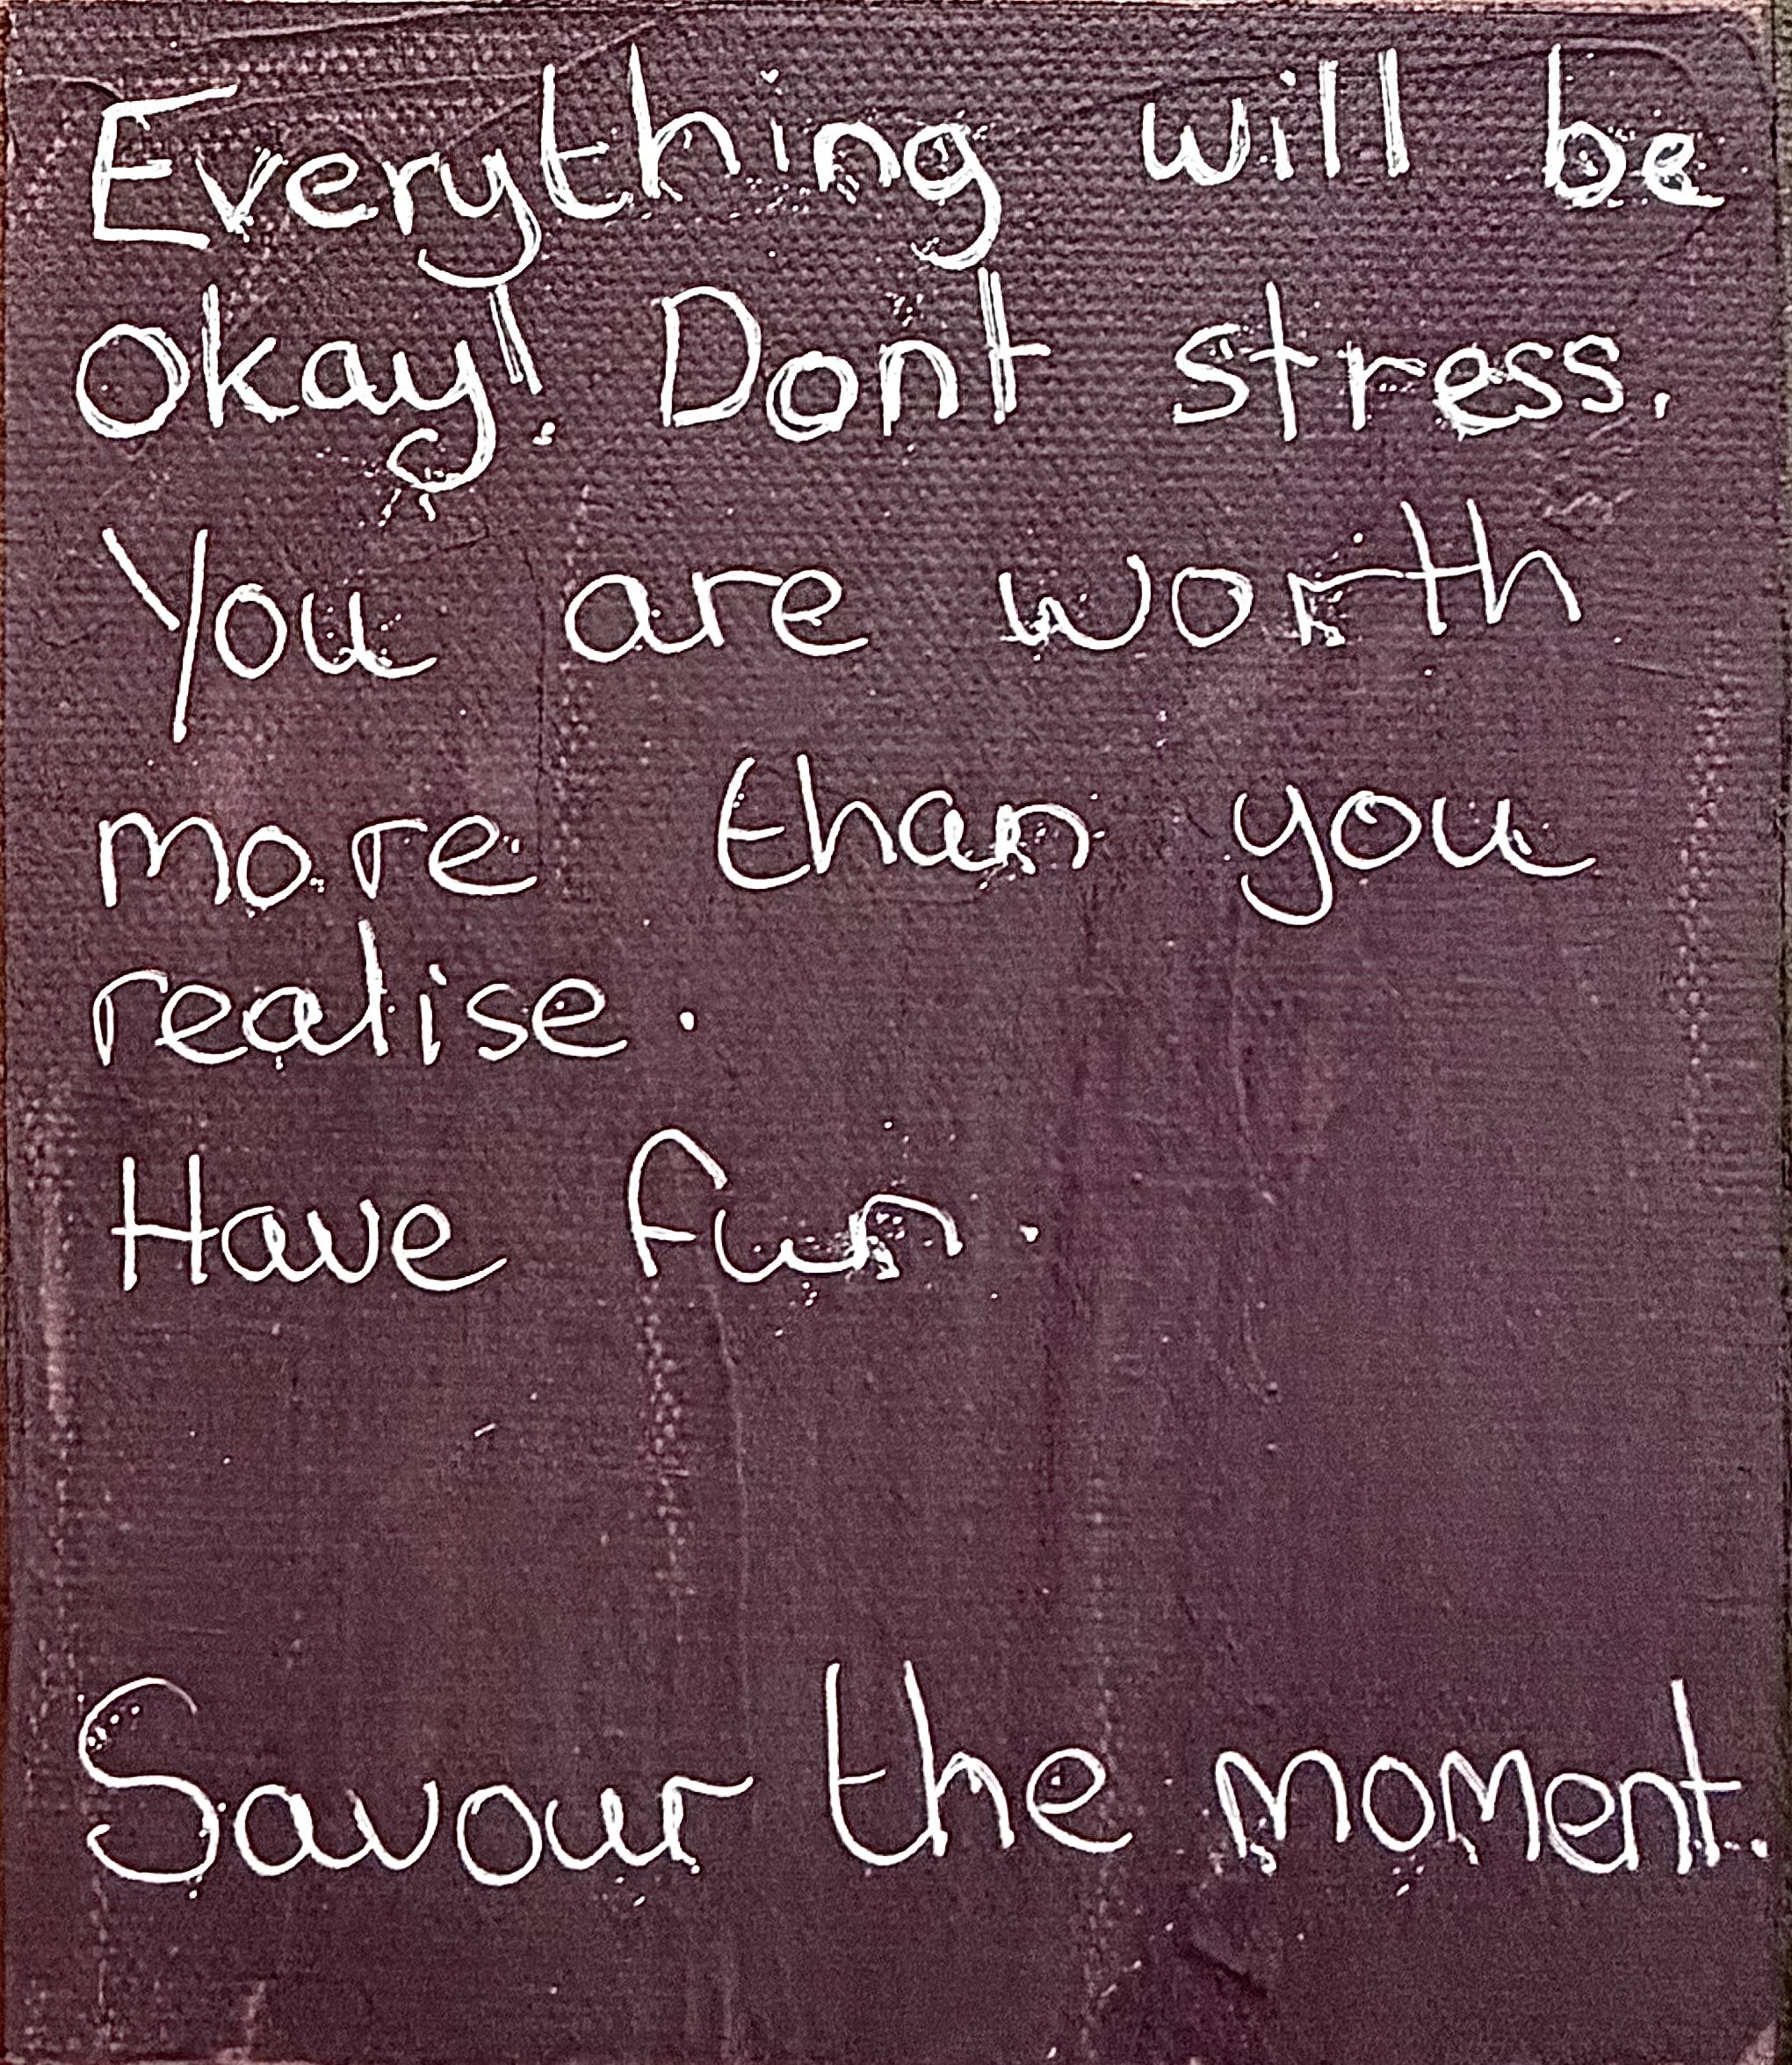 Everything will be
okay! Dont stress.
You are worth
more than you
realise.
Have fun.
Savour the moment.